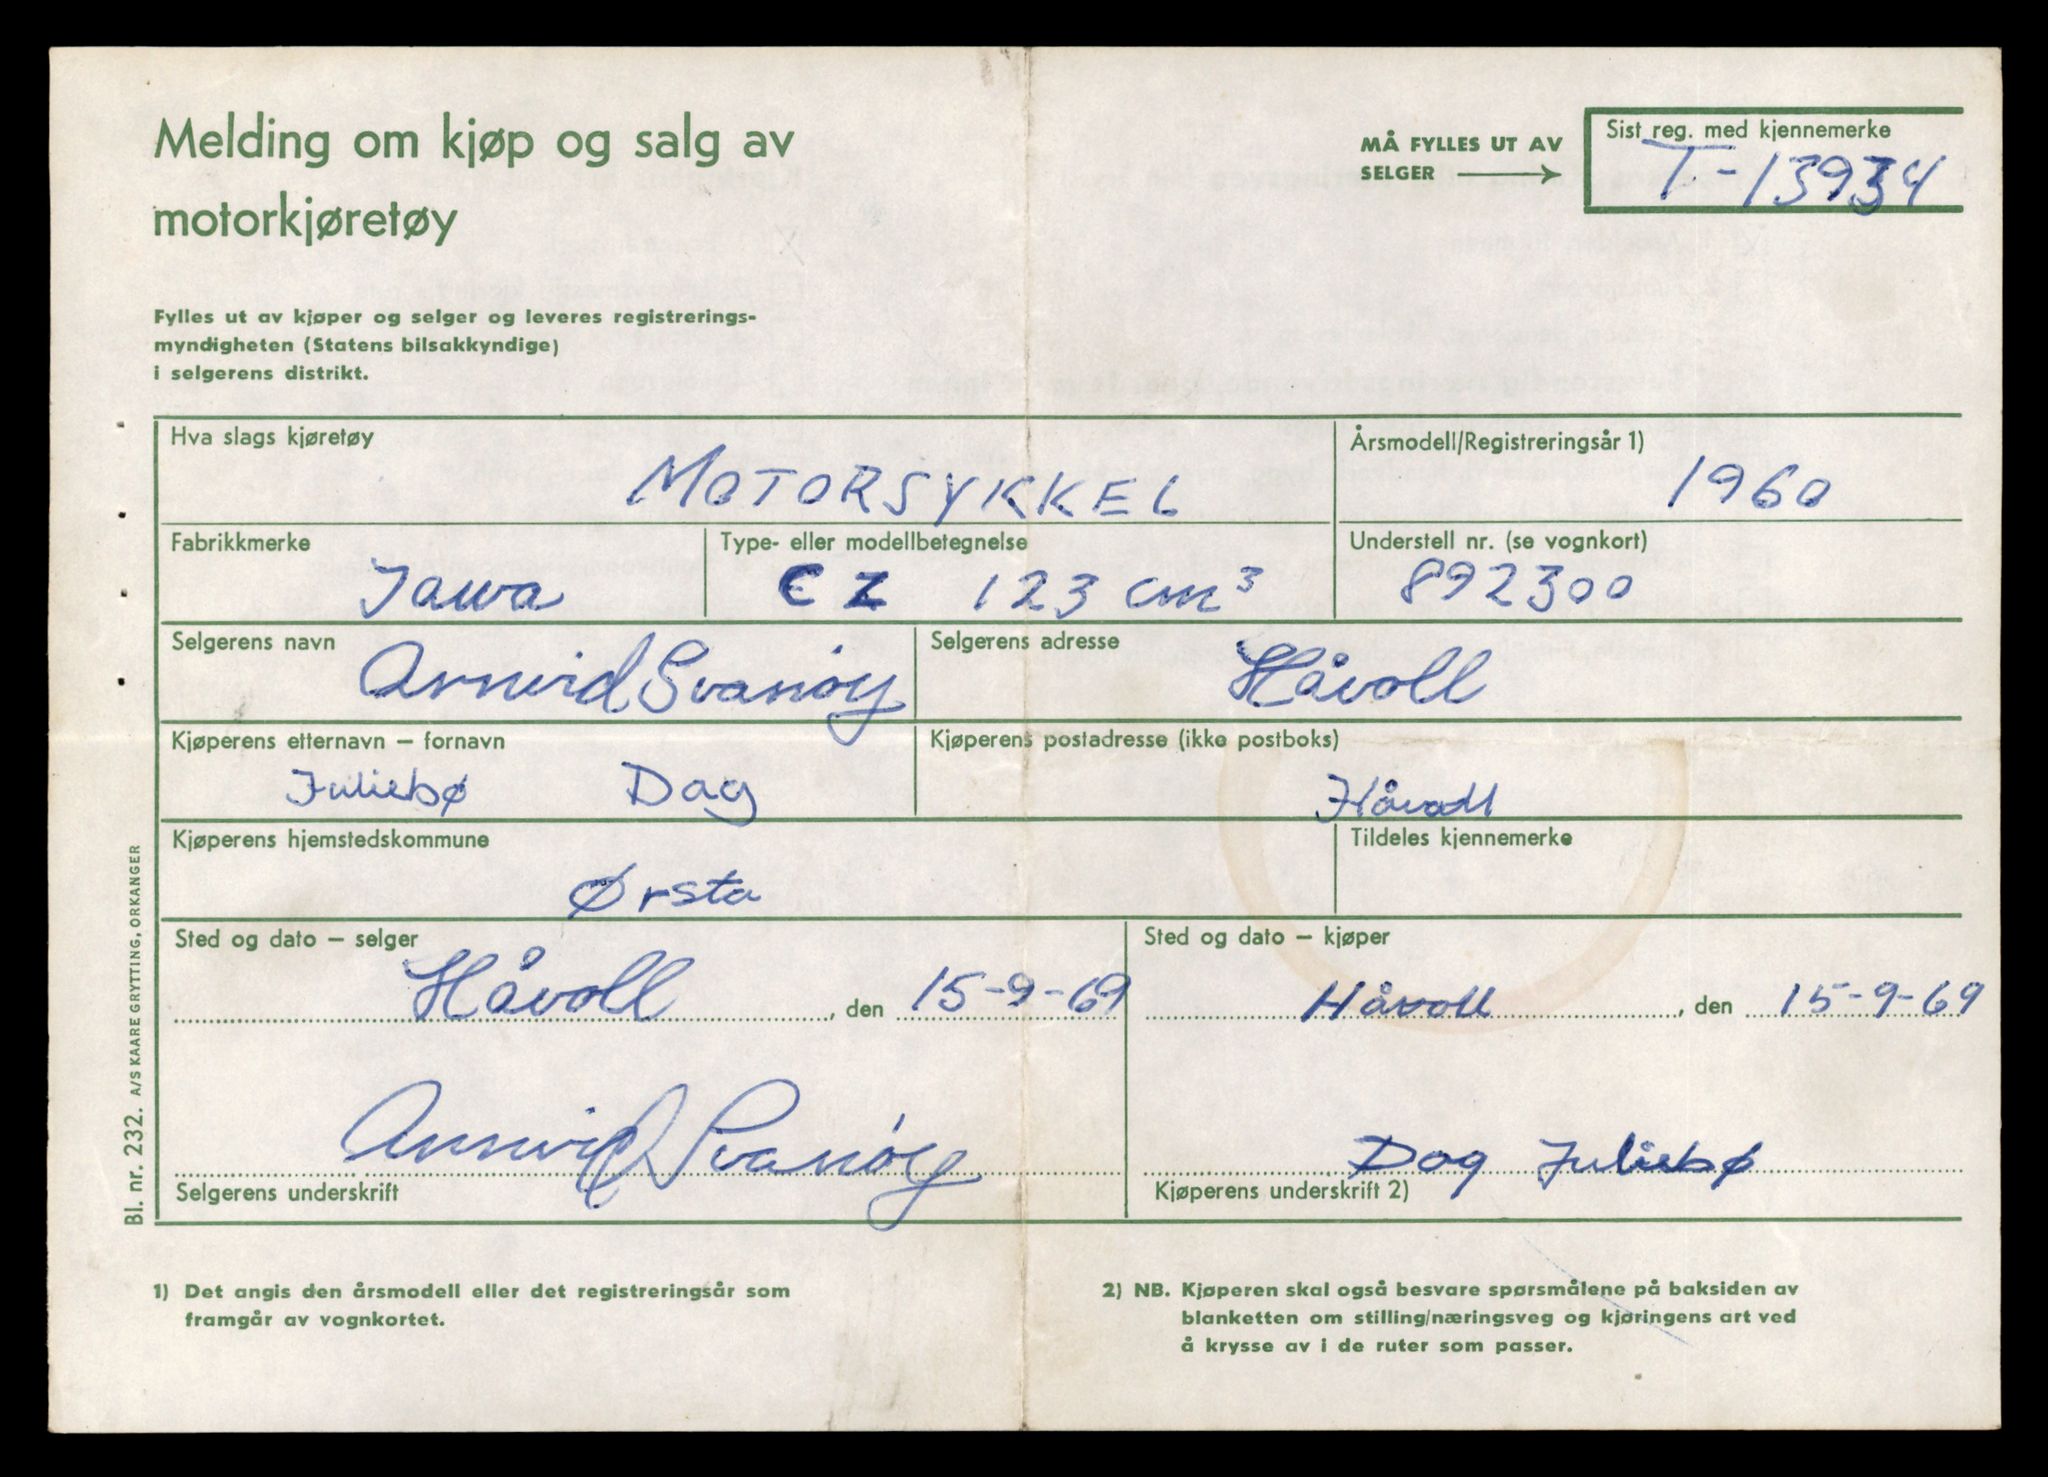 Melding om kjøp og salg av
motorkjøretøy
MÅ FYLLES UT AV
SELGER
Sist reg. med kjennemerke
T-13934
Fylles ut av kjøper og selger og leveres registrerings-
myndigheten (Statens bilsakkyndige)
i selgerens distrikt.
Hva slags kjøretøy
MOTORSYKKEL
Årsmodell/Registreringsår 1)
1960
Fabrikkmerke
Jawa
Type- eller modellbetegnelse
CZ 123 cm³
Understell nr. (se vognkort)
892300
Selgerens navn
Arnvid Svanøy
Selgerens adresse
Håvoll
Kjøperens etternavn – fornavn
Juliebø Dag
Kjøperens postadresse (ikke postboks)
Håvoll
Kjøperens hjemstedskommune
Ørsta
Tildeles kjennemerke
Sted og dato – selger
Håvoll, den 15-9-69
Sted og dato – kjøper
Håvoll, den 15-9-69
Arnvid Svanøy
Selgerens underskrift
Dag Juliebø
Kjøperens underskrift 2)
Bl. nr. 232. A/S KAARE GRYTTING, ORKANGER
1) Det angis den årsmodell eller det registreringsår som
framgår av vognkortet.
2) NB. Kjøperen skal også besvare spørsmålene på baksiden av
blanketten om stilling/næringsveg og kjøringens art ved
å krysse av i de ruter som passer.